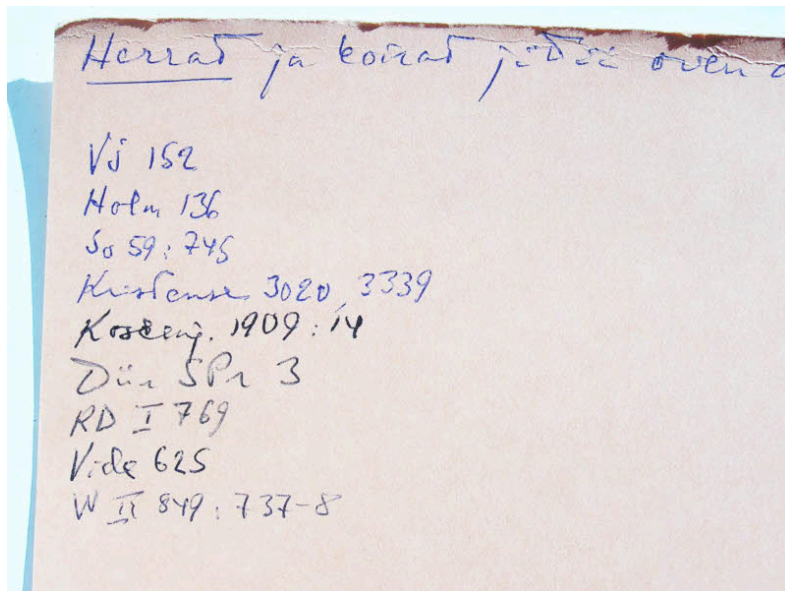 Herrat ja koirat jättää oven a
VS 152
Holm 136
So 59: 745
Kristense 3020, 3339
Koskenj. 1909:14
Dür SPr 3
RD I 769
Vide 625
W II 849: 737-8